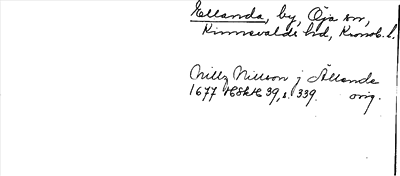 Ellanda, by, Öja sn,
Kinnevalds hd, Kronob. l.
Nills Nillson j Ällande
1677 HSkH 39, s. 339. orig.